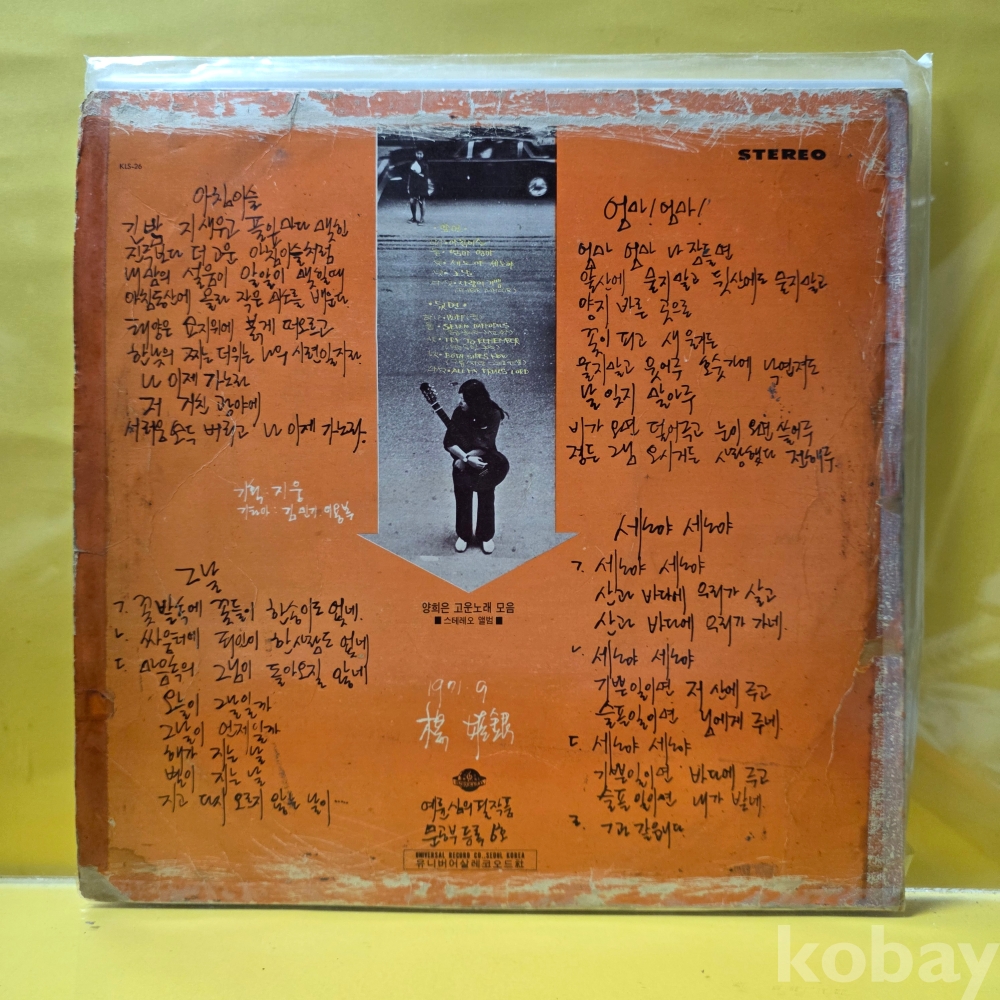 KLS-26
STEREO
아침이슬
긴밤 지새우고 풀잎마다 맺힌
진주보다 더 고운 아침이슬처럼
내 맘의 설움이 알알이 맺힐때
아침동산에 올라 작은 미소를 배운다.
태양은 묘지위에 붉게 떠오르고
한낮의 찌는 더위는 나의 시련일지라
나 이제 가노라
저 거친 광야에
서러움 모두 버리고 나 이제 가노라.
기획·지웅
기타아 : 김민기·이용복
그날
ㄱ. 꽃밭속에 꽃들이 한송이도 없네.
ㄴ. 싸움터에 죄인이 한사람도 없네
ㄷ. 마음속의 그님이 돌아오질 않네
오늘이 그날일까
그날이 언제일까
해가 지는 날
별이 지는 날
지고 다시 오르지 않는 날이....
SEVEN DAFFODILS
TRY TO REMEMBER
BOTH SIDES NOW
양희은 고운노래 모음
■ 스테레오 앨범 ■
1971. 9
楊 姬銀
예륜심의필작품
문공부등록
UNIVERSAL RECORD CO. SEOUL KOREA
유니버어살레코오드社
엄마! 엄마!
엄마 엄마 나 잠들면
앞산에 묻지말고 뒷산에도 묻지말고
양지 바른 곳으로
꽃이 피고 새 울거든
울지말고 웃어주
날 잊지 말아주
비가 오면 덮어주고 눈이 오면 쓸어주
정든 그님 오시거든 사랑했다 전해주.
세노야 세노야
ㄱ. 세노야 세노야
산과 바다에 우리가 살고
산과 바다에 우리가 가네.
ㄴ. 세노야 세노야
기쁜일이면 저 산에 주고
슬픈일이면 님에게 주네.
ㄷ. 세노야 세노야
기쁜일이면 바다에 주고
슬픈일이면 내가 받네.
ㄹ. ㄱ과 같읍니다
kobay